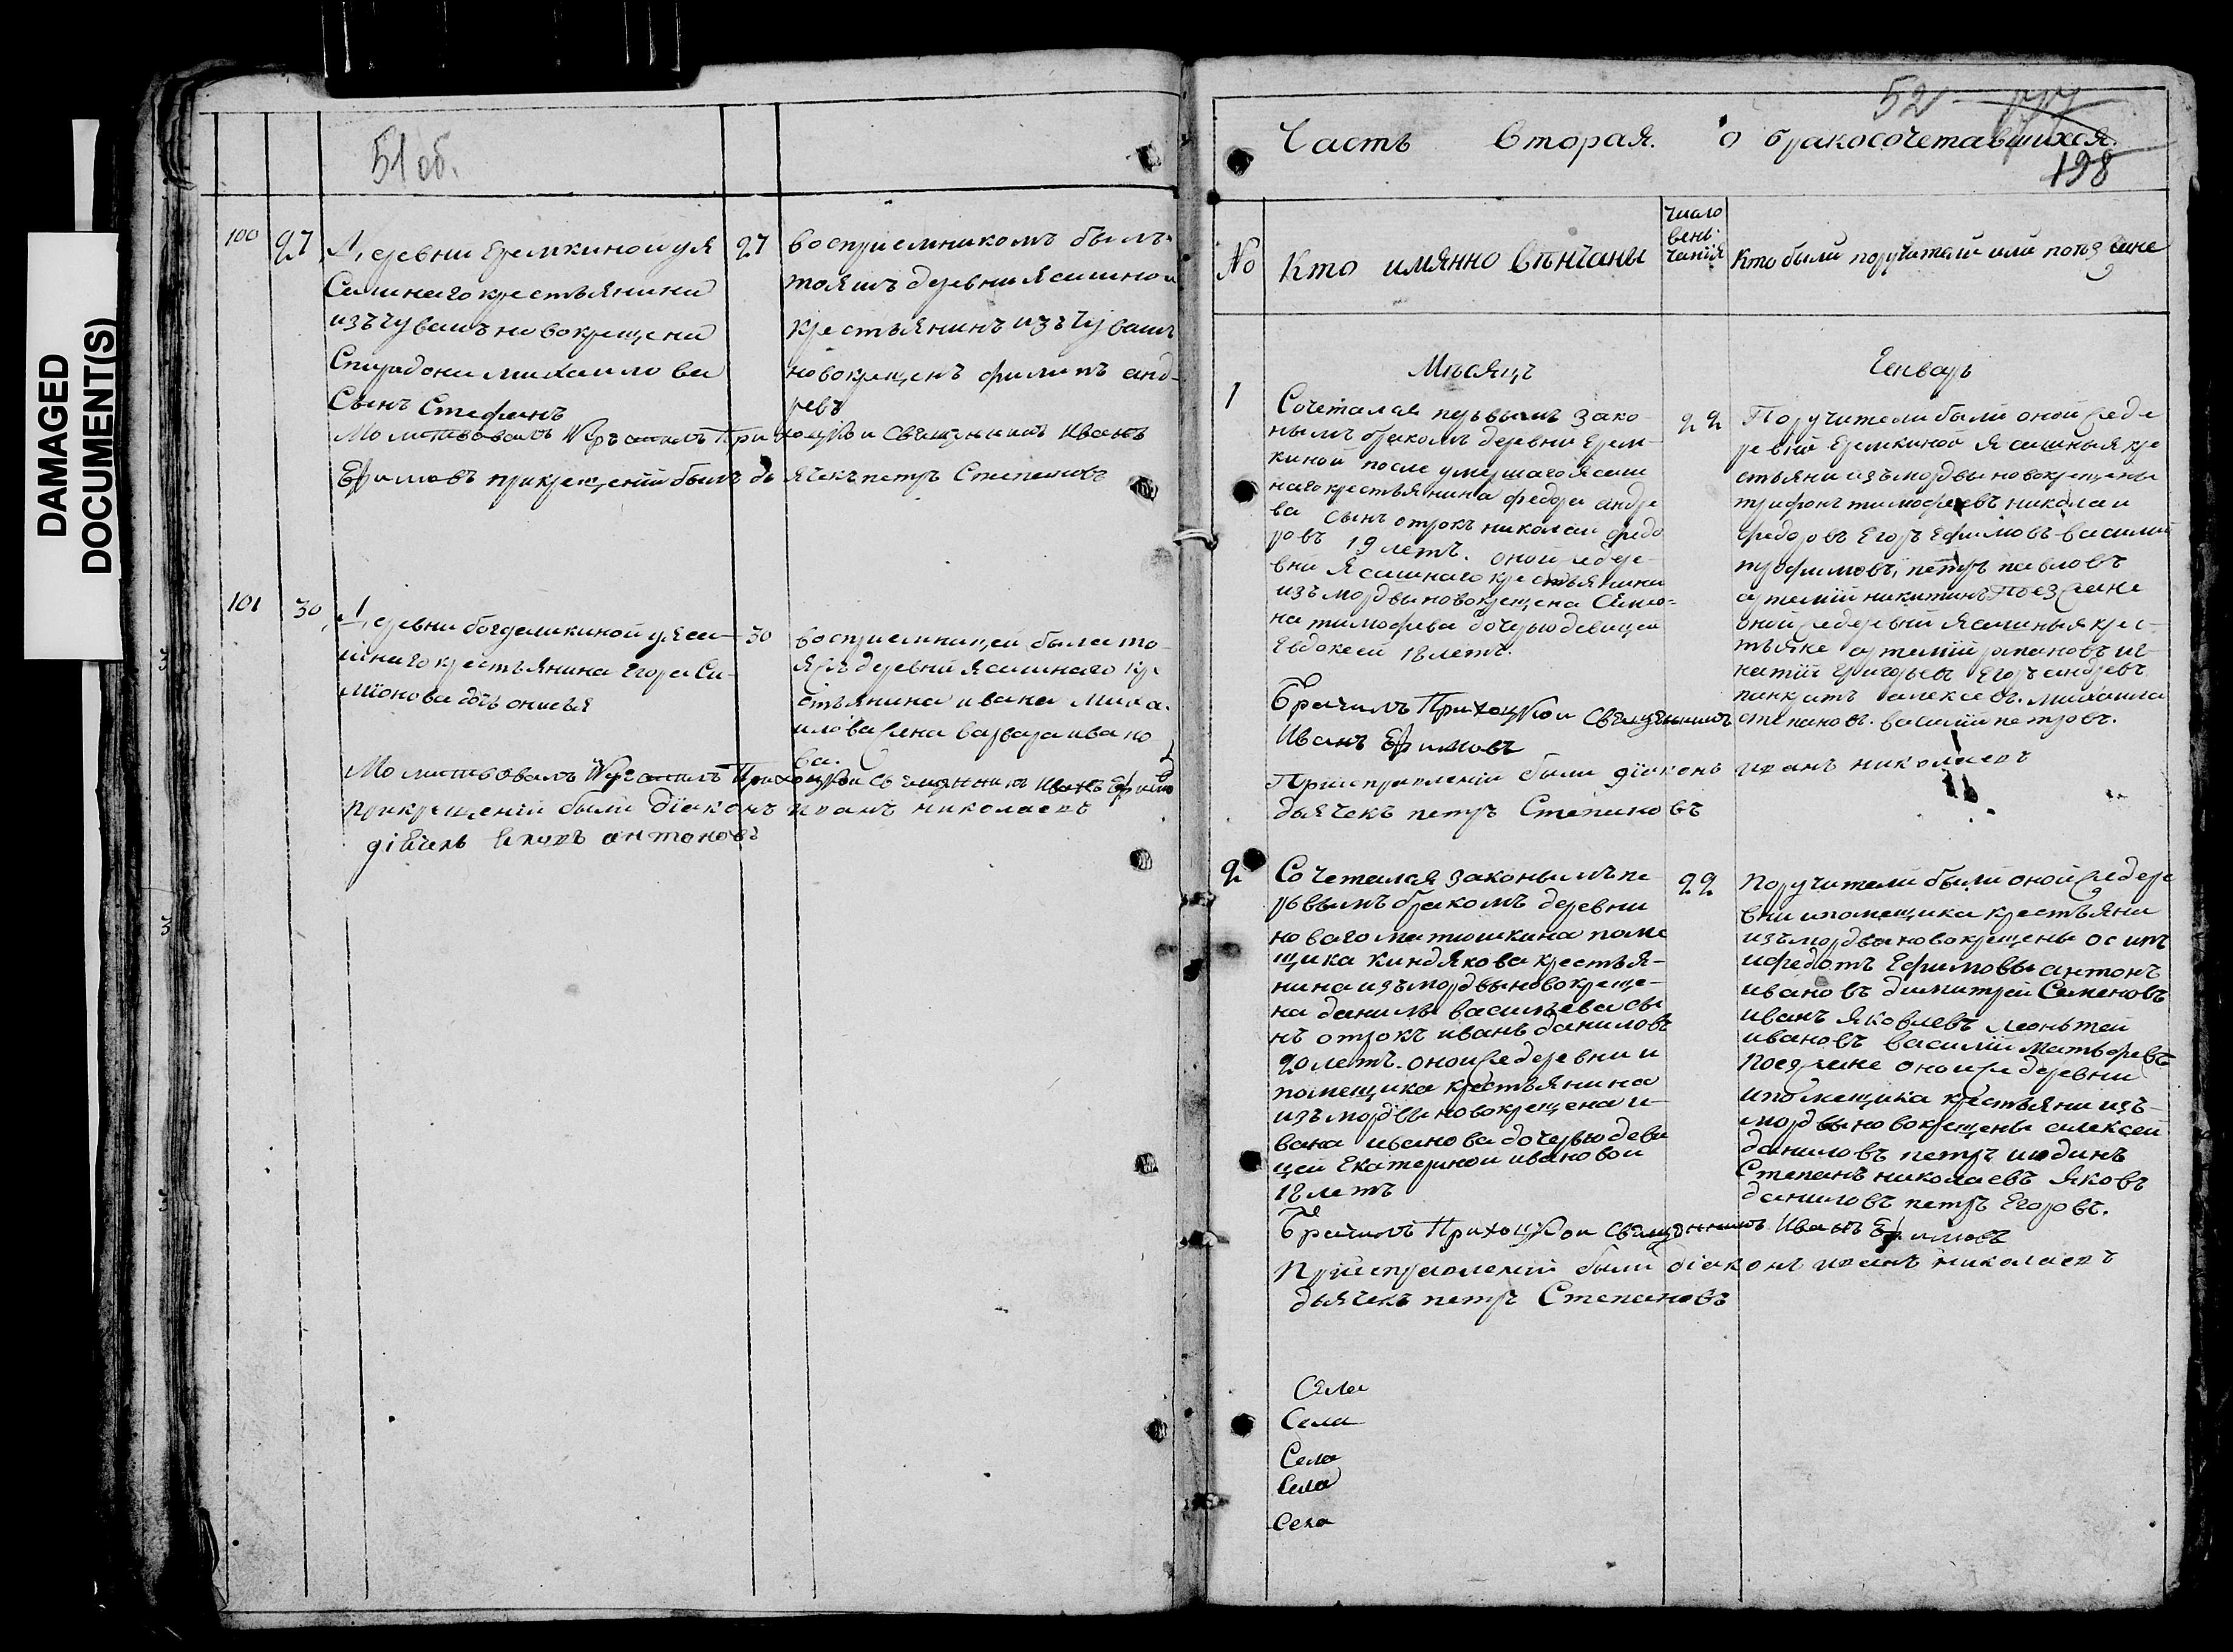 DAMAGED
DOCUMENT(S)
51 об.
100 27 Деревни Еремкиной у Я
сашнаго крестьянина
изъ чувашъ новокрещена
Спиридона михаилова
Сынъ Стефанъ
27 восприемникомъ былъ
тояжъ деревни ясашной
крестьянинъ изъ чувашъ
новокрещенъ филипъ анд-
ревъ
Молитвовалъ Крестилъ Приходцкои Священникъ Иванъ
Ефимовъ прикрещении былъ дьячекъ петръ Степановъ
101 30 Деревни богдашкиной у яса-
шнаго крестьянина Егора Си-
мионова дочь анисья
30 восприемницеи была то-
яжъ деревни ясашнаго кр
стьянина ивана миха-
илова жена варвара ивано
ва.
Молитвовалъ Крестилъ Приходцкои Священникъ Иванъ Ефимо
прикрещении были диаконъ иванъ николаевъ
антоновъ
52
198
Часть Вторая. о бракосочетавшихся.
№
Кто имянно венчаны
число
вень-
чания
Кто были поручители или поезжане
Месяцъ Генварь
1
Сочетался первымъ зако-
нымъ бракомъ деревни Ерем-
киной после умершаго ясаш
наго крестьянина федора андре
ва сынъ отрокъ николаи федо
ровъ 19 летъ. оной же дере-
вни Ясашнаго крестьянина
изъ мордвы новокрещена Симо-
на тимофева дочерью девицеи
Евдокеей 18 летъ.
22
Поручители были оной же де
ревни Еремкиной Ясашныя кре
стьяни изъ мордвы новокрещены
трифонъ тимофеевъ никола и
Федоровъ Егоръ Ефимовъ василий
трофимовъ, петръ павловъ
артемий никитинъ Поезжане
оной же деревни Ясашныя крес-
тьяне артемий романовъ иг-
натий Григорьев Егоръ андревъ
панкратъ алексеевъ. михаила
степановъ. василий петровъ.
Брачилъ Приходцкои Священникъ
Иванъ Ефимовъ
Приисправлении были диаконъ иванъ николаевъ
дьячекъ петръ Степановъ
2
Сочетался законымъ пе
рвымъ бракомъ деревни
новаго матюшкина поме
щика киндякова крестья-
нина изъ мордвы новокреще-
на данилы васильева сы
нъ отрокъ иванъ даниловъ
20 летъ. оной же деревни и
помещика крестьянина
изъ мордвы новокрещена и-
вана иванова дочерью деви
цеи Екатериной ивановои
18 летъ
22
поручители были оной же дере
вни ипомещика крестьяни
изъ мордвы новокрещены осипъ
ифедотъ Ефимовы антонъ
ивановъ димитрей Семеновъ
иванъ Яковлевъ леонтей
ивановъ василий матвфевъ
поезжане оной же деревни
ипомещика крестьяни изъ-
мордвы новокрещены алексеи
даниловъ петръ июдинъ
Степанъ николаевъ Яковъ
даниловъ петръ Егоровъ.
Брачилъ Приходцкои Священникъ Иванъ Ефимовъ
Приисправлении были диаконъ иванъ николаевъ
дьячекъ петръ Степановъ
Села
Села
Села
Села
Села